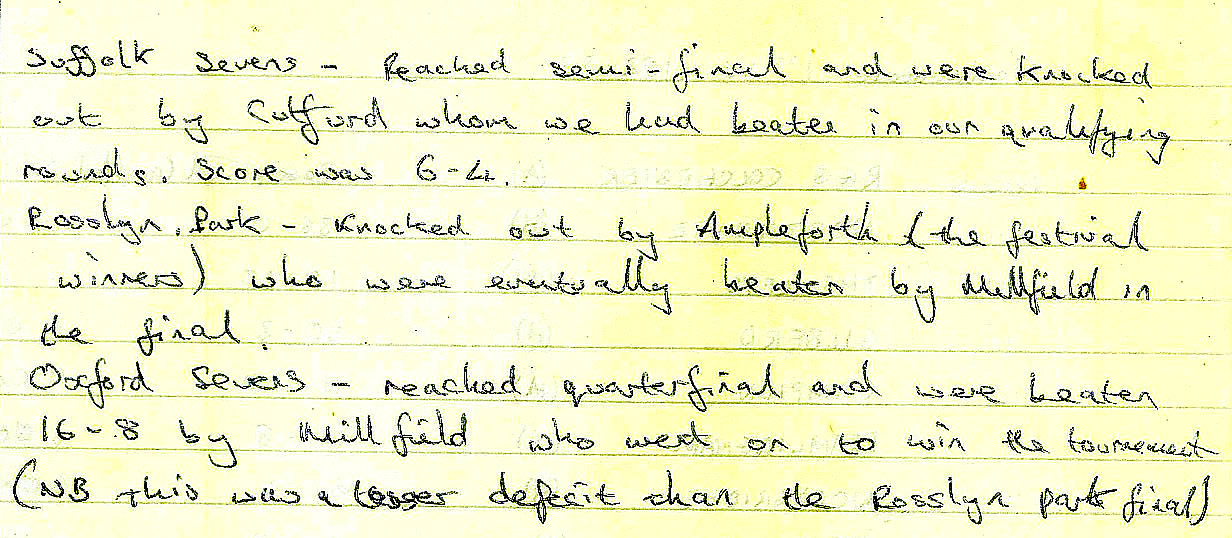 Suffolk Sevens - Reached semi-final and were knocked
out by Culford whom we had beaten in our qualifying
rounds. Score was 6-4.
Rosslyn Park - Knocked out by Ampleforth (the festival
winners) who were eventually beaten by Millfield in
the final.
Oxford Sevens - reached quarterfinal and were beaten
16-8 by Millfield who went on to win the tournement
(NB this was a lesser defecit than the Rosslyn park final)